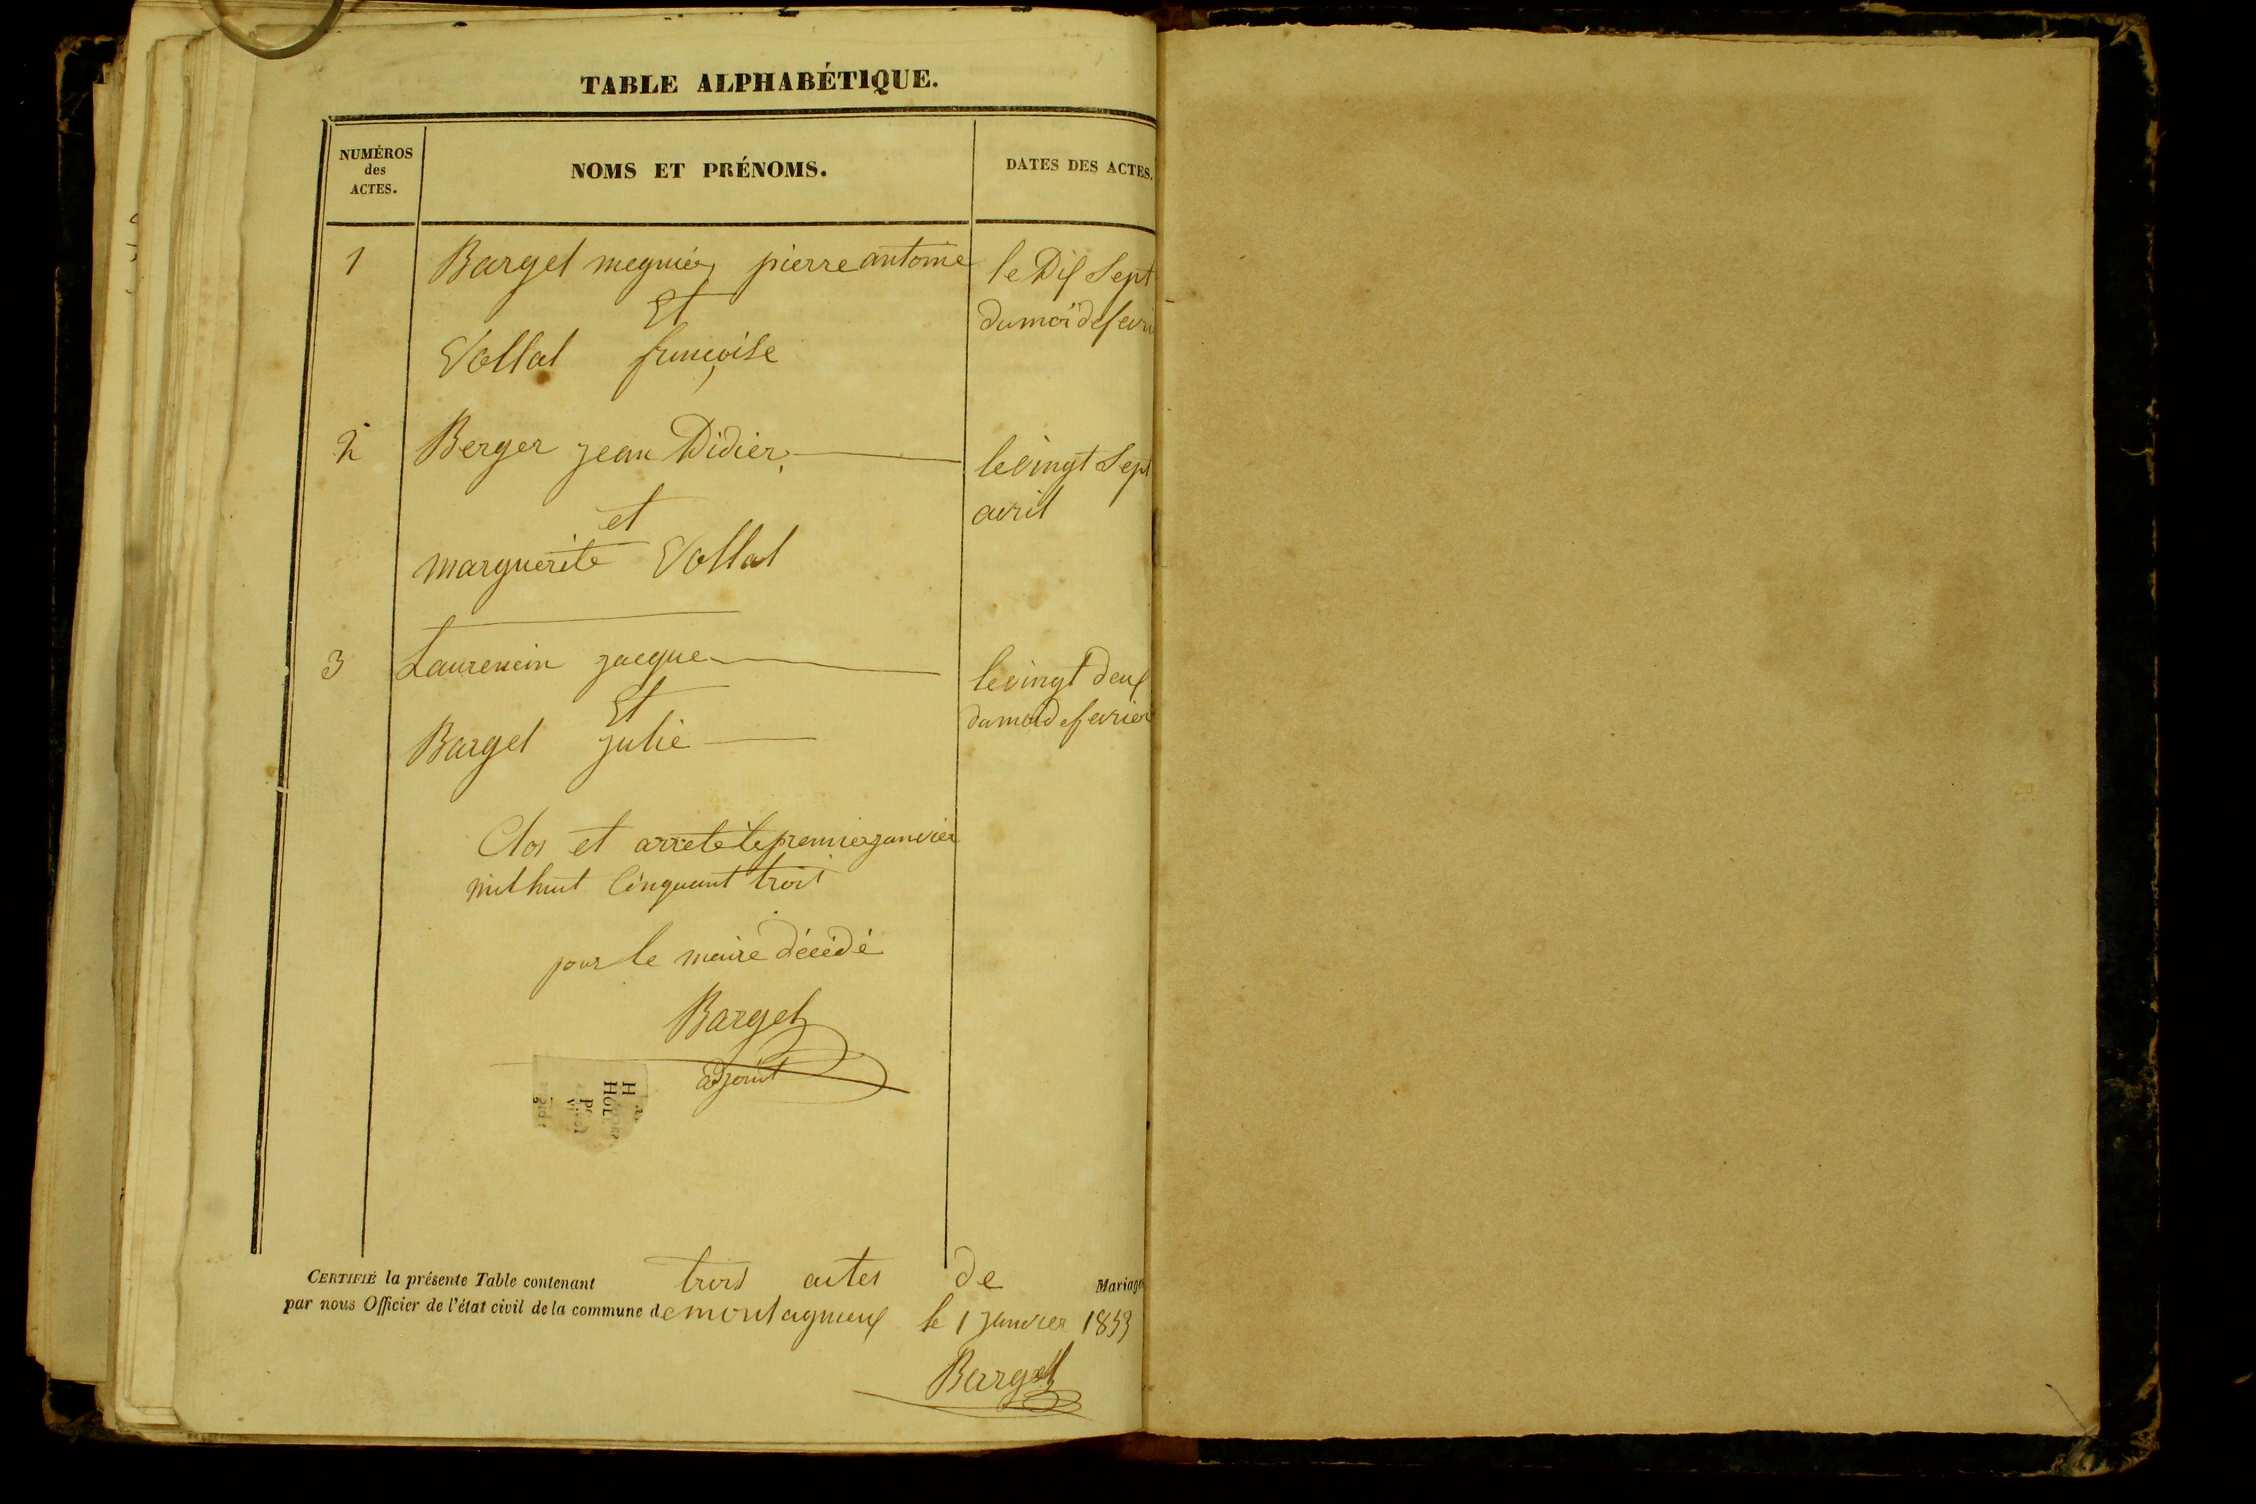 TABLE ALPHABÉTIQUE.
NUMÉROS
des
ACTES.
NOMS ET PRÉNOMS.
DATES DES ACTES.
1 Barget megnier pierre antoine le Dix Sept
Et du moi de fevri
Vollat françoise
2 Berger jean Didier le vingt Sept
et avril
marguerite Vollat
3 Laurencin jacque le vingt deux
Et du moi de fevrier
Barget julie
Clos et arrete le premier janvier
mil huit Cinquant trois
pour le maire décédé
Barget
adjoint
CERTIFIÉ la présente Table contenant trois actes de Mariage
par nous Officier de l'état civil de la commune de montagnieux le 1 janvier 1853
Barget